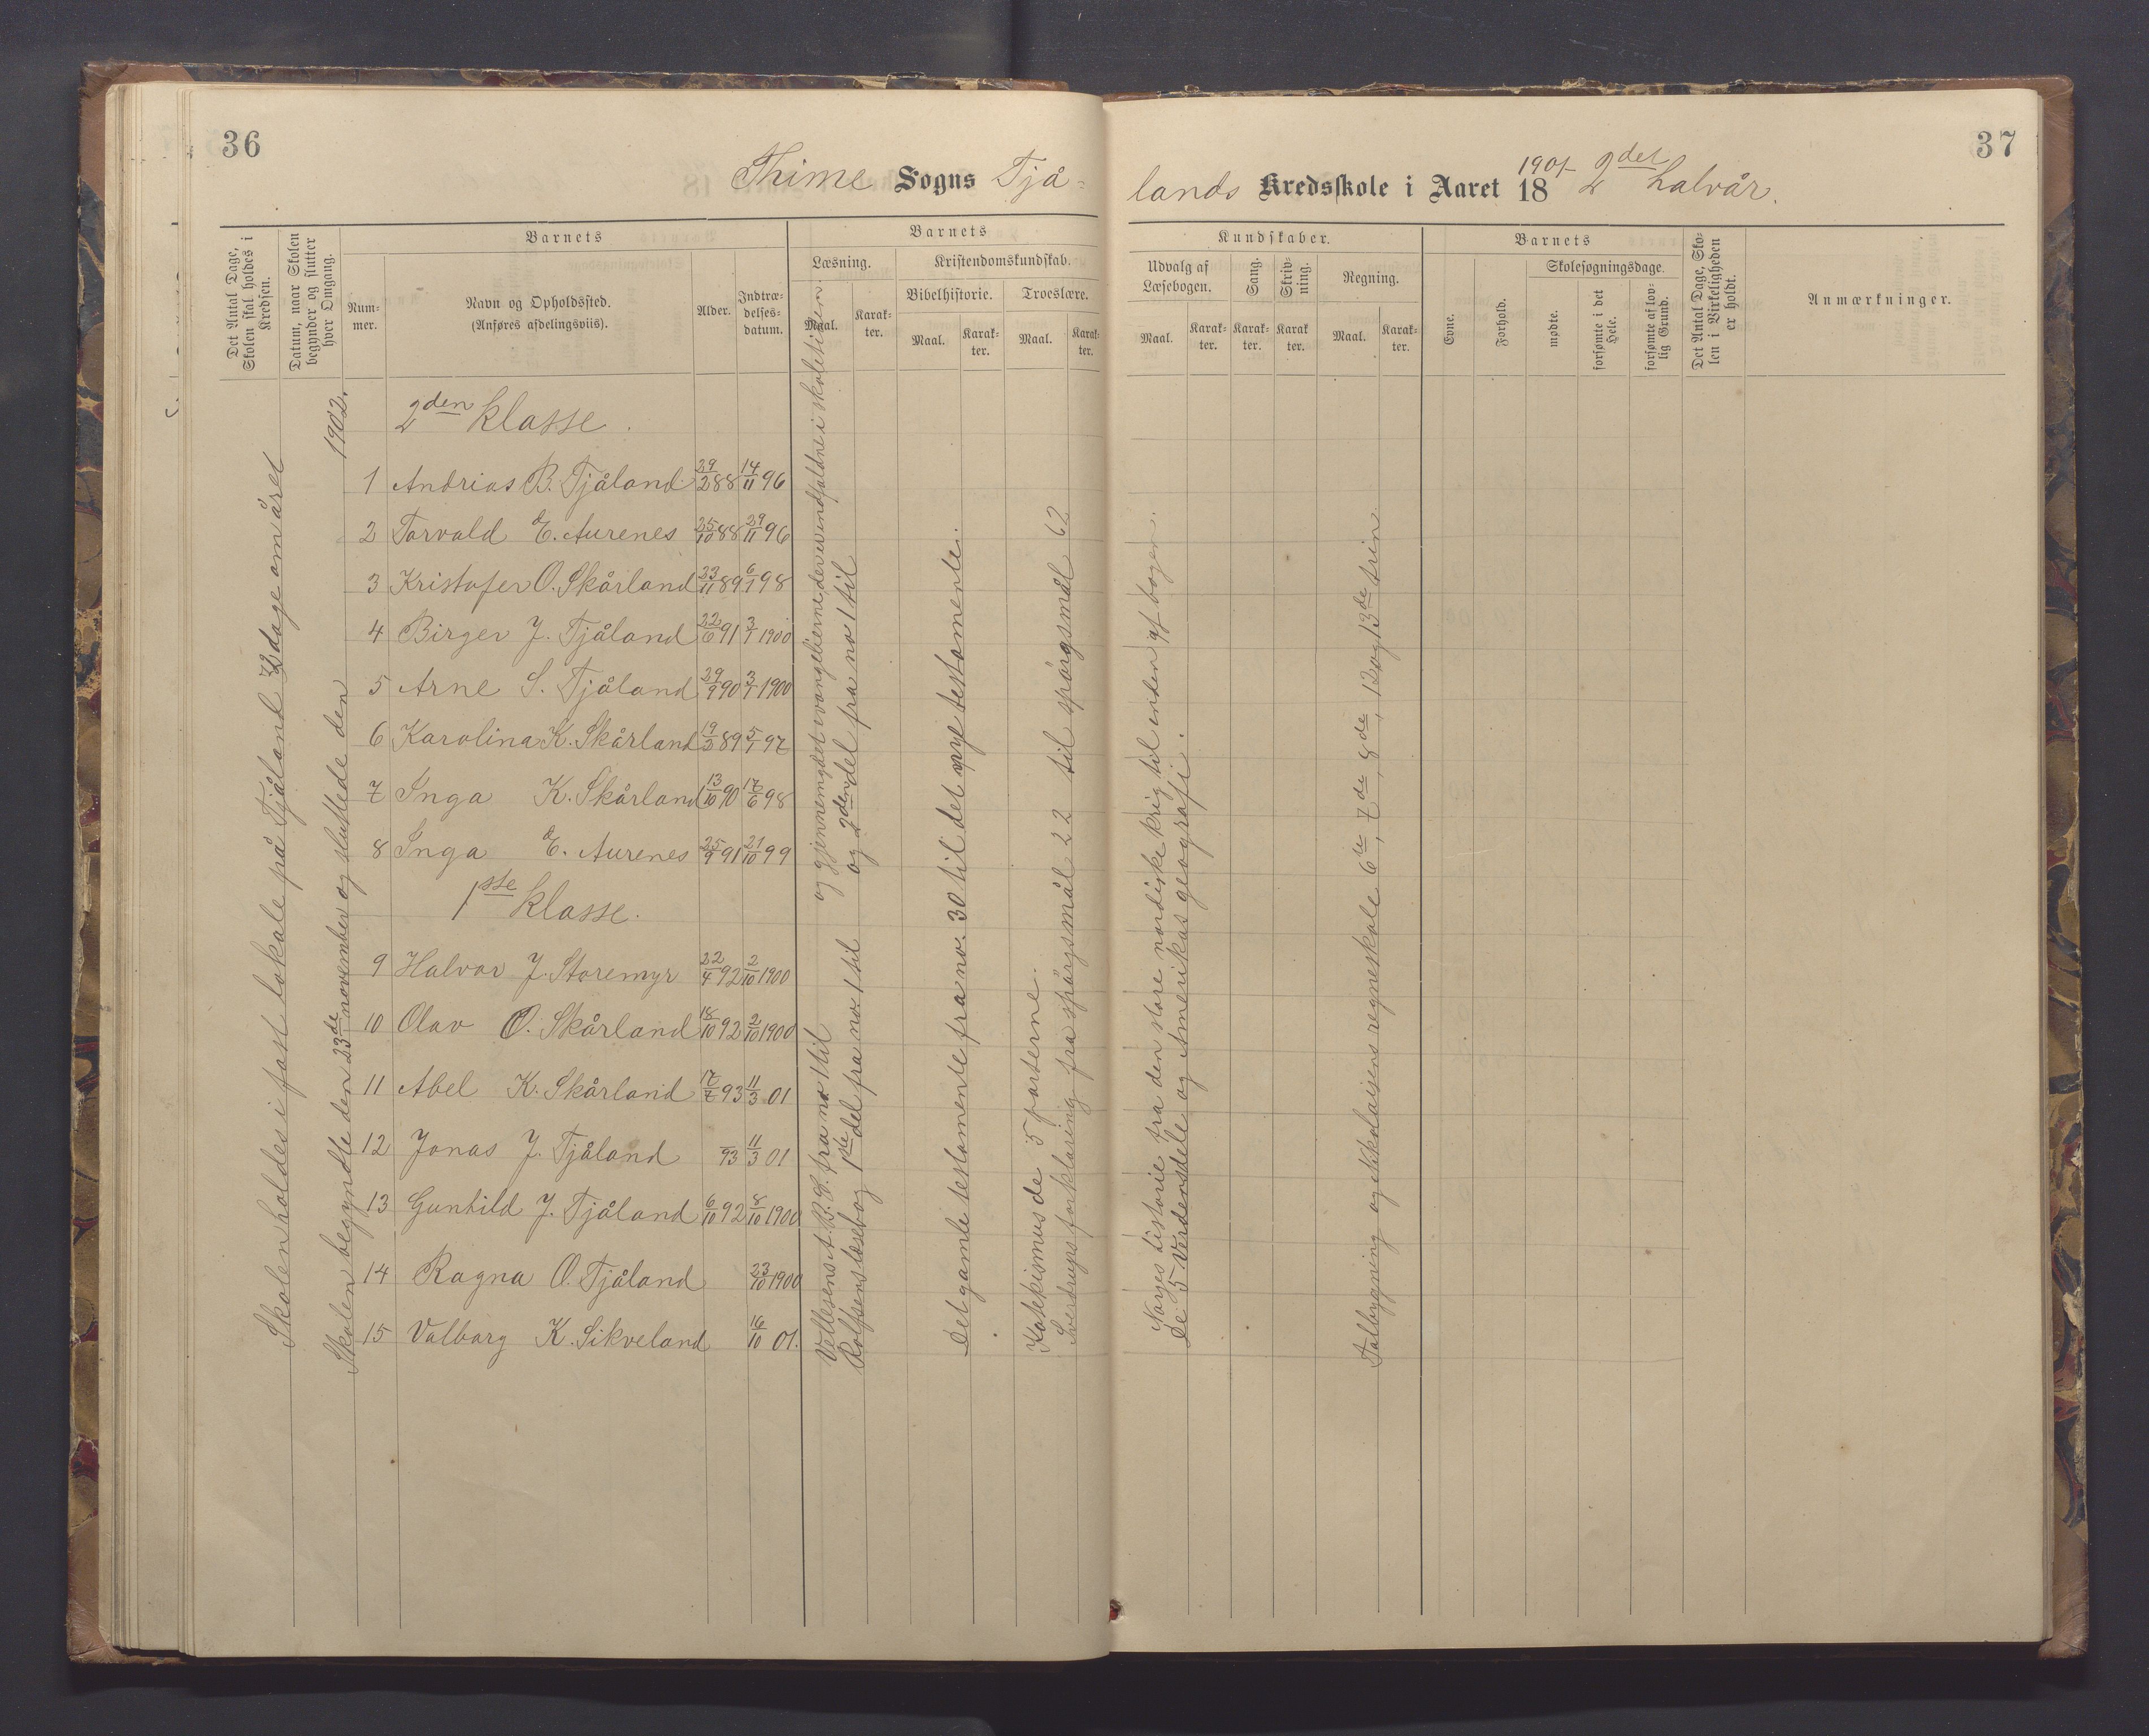 36
37
Thime Sogns Tjå-
lands Kredsskole i Aaret 18 1901 2det halvår.
Det Antal Dage, Skolen skal holdes i Kredsen.
Datum, naar Skolen begynder og slutter hver Omgang.
Barnets
Num-
mer.
Navn og Opholdssted.
(Anføres afdelingsviis).
Alder.
Indtræ-
delses-
datum.
Barnets
Læsning.
Maal.
Karak-
ter.
Kristendomskundskab.
Bibelhistorie.
Maal.
Karak-
ter.
Troeslære.
Maal.
Karak-
ter.
Kundskaber.
Udvalg af
Læsebogen.
Maal.
Karak-
ter.
Sang.
Karak-
ter.
Skriv-
ning.
Karak
ter.
Regning.
Maal.
Karak-
ter.
Barnets
Evne.
Forhold.
Skolesøgningsdage.
mødte.
forsømte i det
Hele.
forsømte af lov-
lig Grund.
Det Antal Dage, Sko-
len i Virkeligheden
er holdt.
Anmærkninger.
Skolen holdes i fast lokale på Tjåland 72 dage om året
Skolen begyndte den 23de november og sluttede den 1902.
2den klasse.
1 Andrias B. Tjåland 29/2 88 14/11 96
2 Torvald E. Aurenes 25/10 88 29/11 96
3 Kristofer O. Skårland 23/11 89 6/1 98
4 Birger J. Tjåland 22/6 91 3/1 1900
5 Arne S. Tjåland 29/9 90 3/1 1900
6 Karolina K. Skårland 19/2 89 5/1 97
7 Inga K. Skårland 13/10 90 17/6 98
8 Inga E. Aurenes 25/9 91 21/10 99
1ste klasse.
9 Halvor J. Storemyr 22/4 92 2/10 1900
10 Olav O. Skårland 18/10 92 2/10 1900
11 Abel K. Skårland 17/7 93 11/3 01
12 Jonas J. Tjåland 93 11/3 01
13 Gunhild J. Tjåland 6/10 92 8/10 1900
14 Ragna O. Tjåland 23/10 1900
15 Valborg K. Sikveland 16/10 01.
A. B. S. fra no 1 til og gjennemgået evangelierne, der er indfaldne i skoletiden.
Rolfsens læsebog 1ste del fra no 1 til og 2den del fra no 1 til
Det gamle testamente fra no. 30 til det nye testamente.
Katekismus de 5 parterne.
Sverdrups forklaring fra spørgsmål 22 til spørgsmål 62
Norges historie fra den store nordiske krig til enden af bogen.
De 5 Verdensdele og Amerikas geografi.
Talbygning og Nikolaisens regneskole 6te, 7de, 8de, 12 og 13de trin